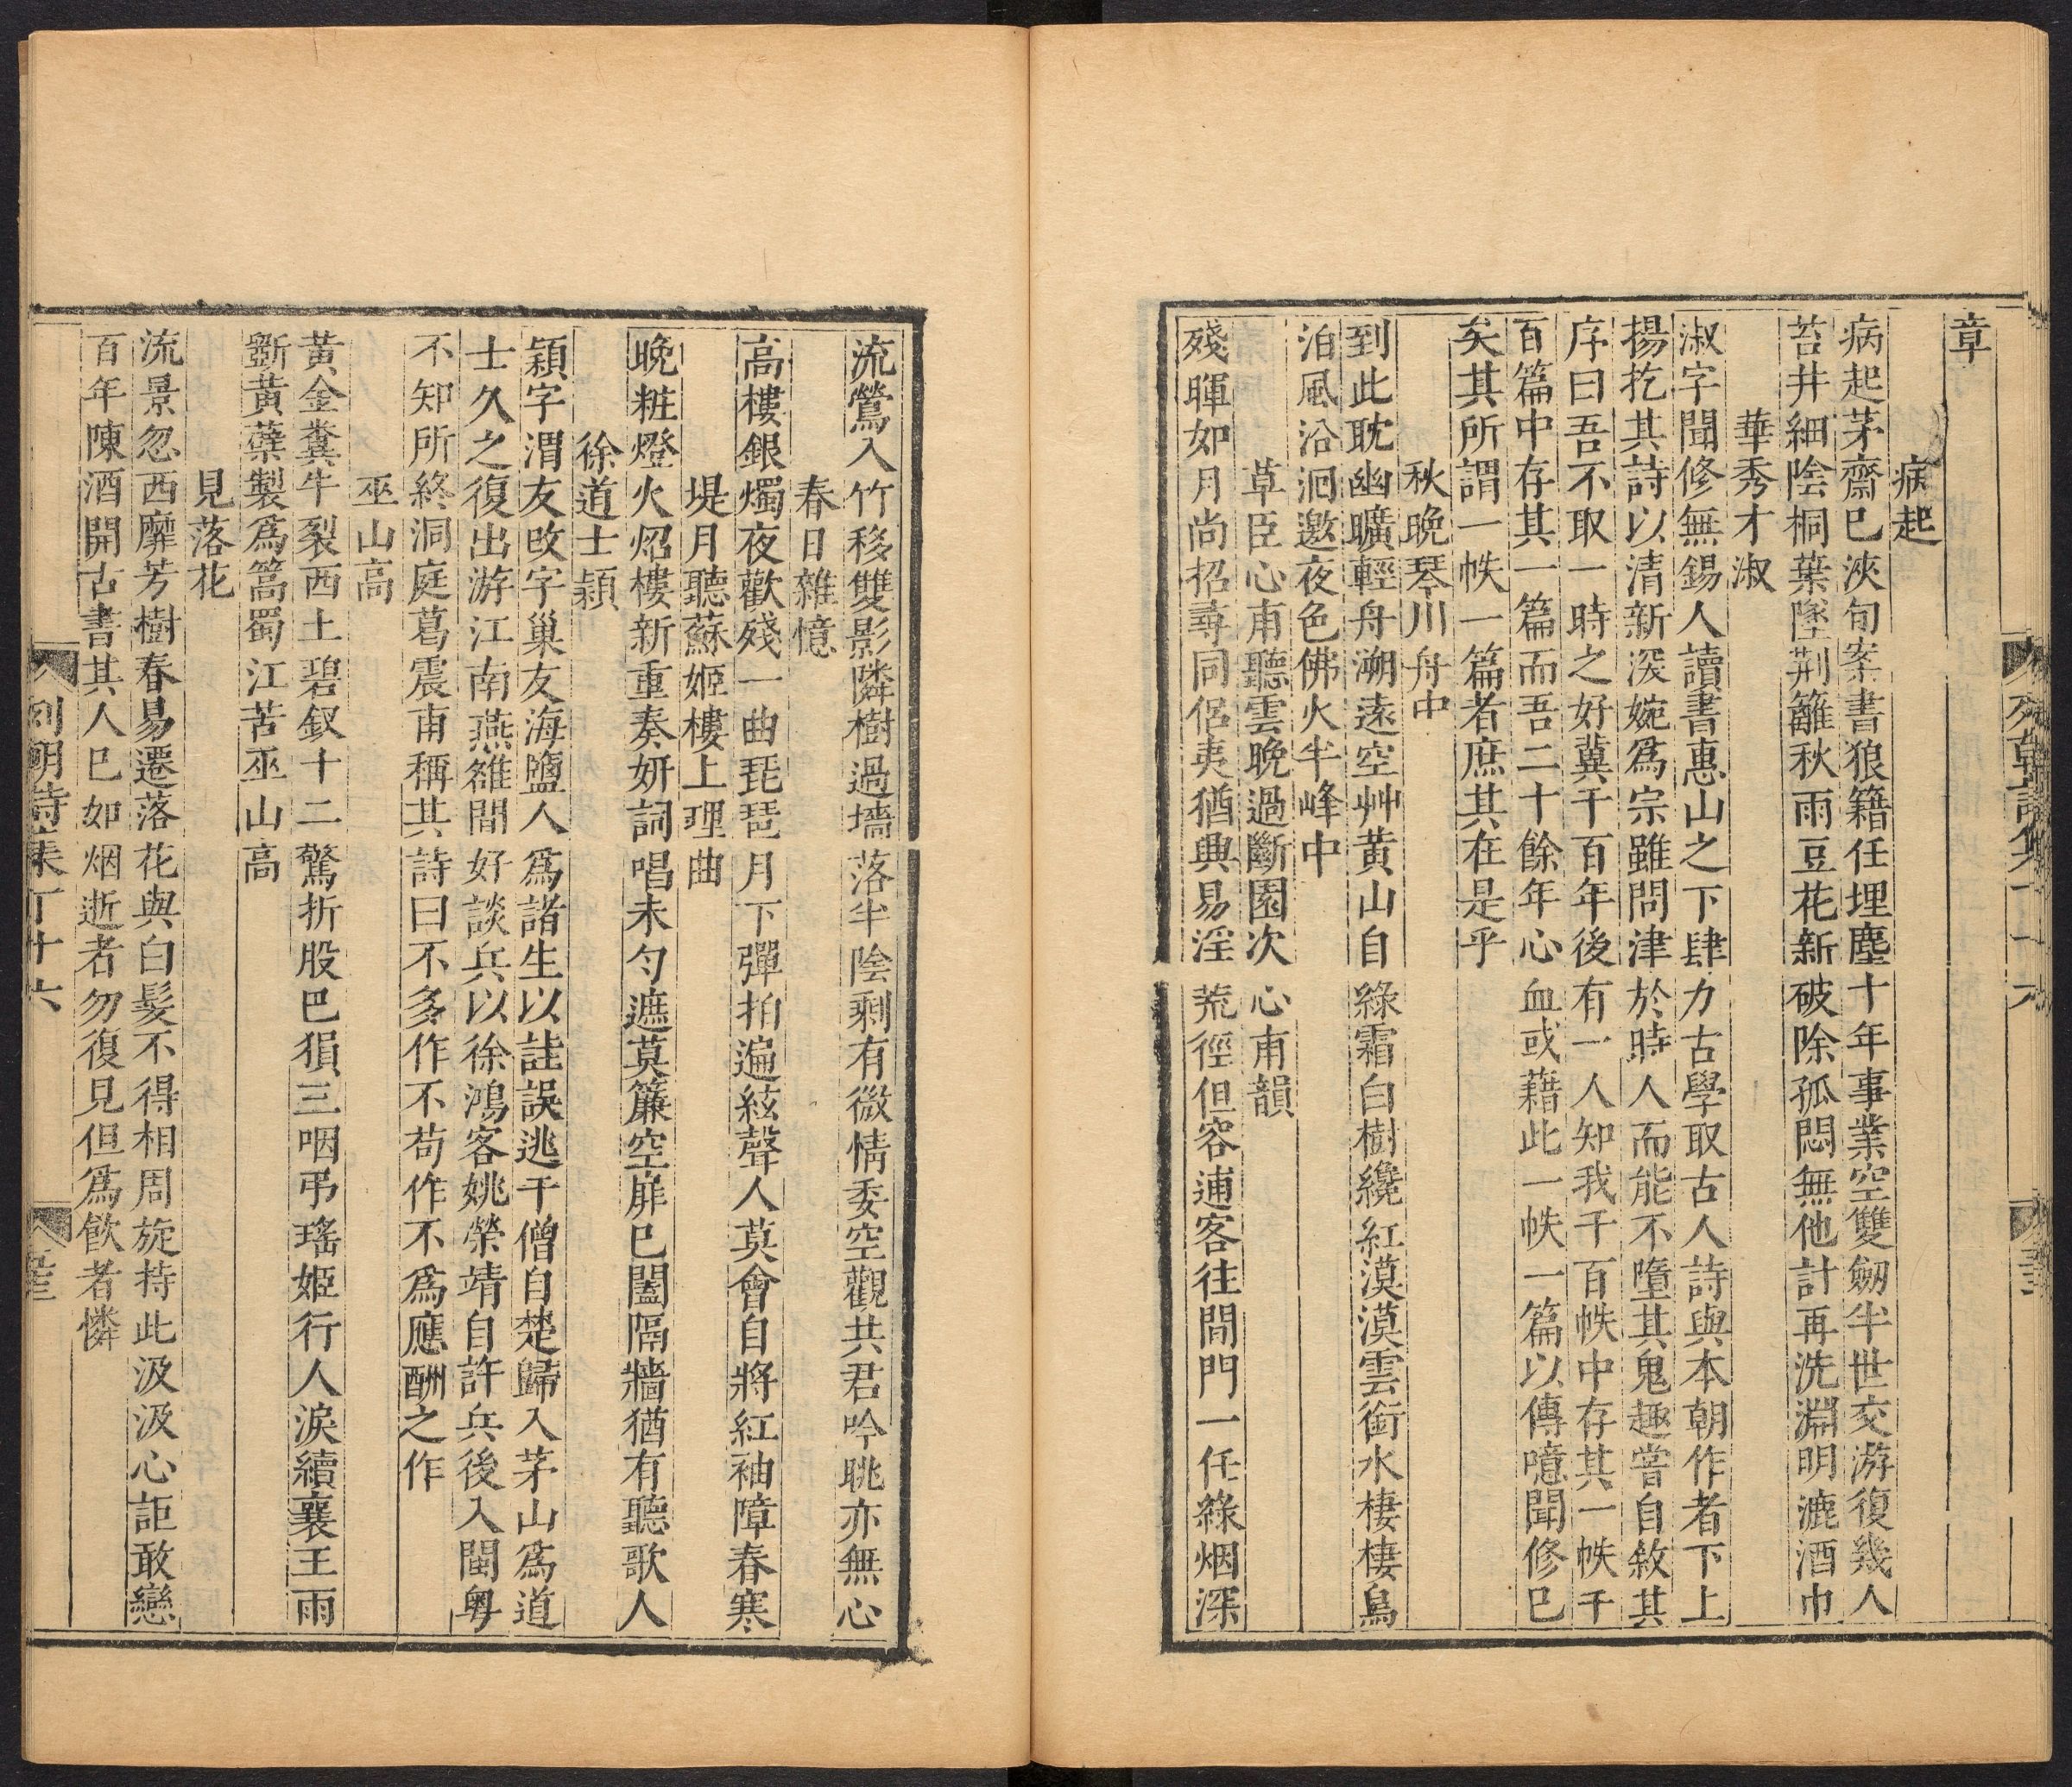 章
病起
病起茅齋已浹旬案書狼籍任埋塵十年事業空雙劒半世交游復幾人
苔井細陰桐葉墜荆籬秋雨豆花新破除孤悶無他計再洗淵明漉酒巾
華秀才淑
淑字聞修無錫人讀書惠山之下肆力古學取古人詩與本朝作者下上
揚扢其詩以清新深婉爲宗雖問津於時人而能不墮其鬼趣嘗自敘其
序曰吾不取一時之好冀千百年後有一人知我千百帙中存其一帙千
百篇中存其一篇而吾二十餘年心血或藉此一帙一篇以傳噫聞修已
矣其所謂一帙一篇者庶其在是乎
秋晚琴川舟中
到此耽幽曠輕舟溯遠空艸黃山自綠霜白樹纔紅漠漠雲銜水棲棲鳥
泊風沿洄邀夜色佛火半峰中
草臣心甫聽雲晚過斷園次心甫韻
殘暉如月尚招尋同侶夷猶興易淫荒徑但容逋客往閒門一任綠烟深
流鶯入竹移雙影隣樹過墻落半陰剩有微情委空觀共君吟眺亦無心
春日雜憶
高樓銀燭夜歡殘一曲琵琶月下彈拍遍絃聲人莫會自將紅袖障春寒
堤月聽蘇姬樓上理曲
晚粧燈火炤樓新重奏妍詞唱未勻遮莫簾空扉已闔隔牆猶有聽歌人
徐道士穎
穎字渭友改字巢友海鹽人爲諸生以詿誤逃于僧自楚歸入茅山爲道
士久之復出游江南燕雒間好談兵以徐鴻客姚榮靖自許兵後入閩粵
不知所終洞庭葛震甫稱其詩曰不多作不苟作不爲應酬之作
巫山高
黃金糞牛裂西土碧釵十二驚折股巴狽三咽弔瑤姬行人淚續襄王雨
斵黃蘗製爲篙蜀江苦巫山高
見落花
流景忽西靡芳樹春易遷落花與白髮不得相周旋持此汲汲心詎敢戀
百年陳酒開古書其人已如烟逝者勿復見但爲飲者憐
列朝詩集丁十六